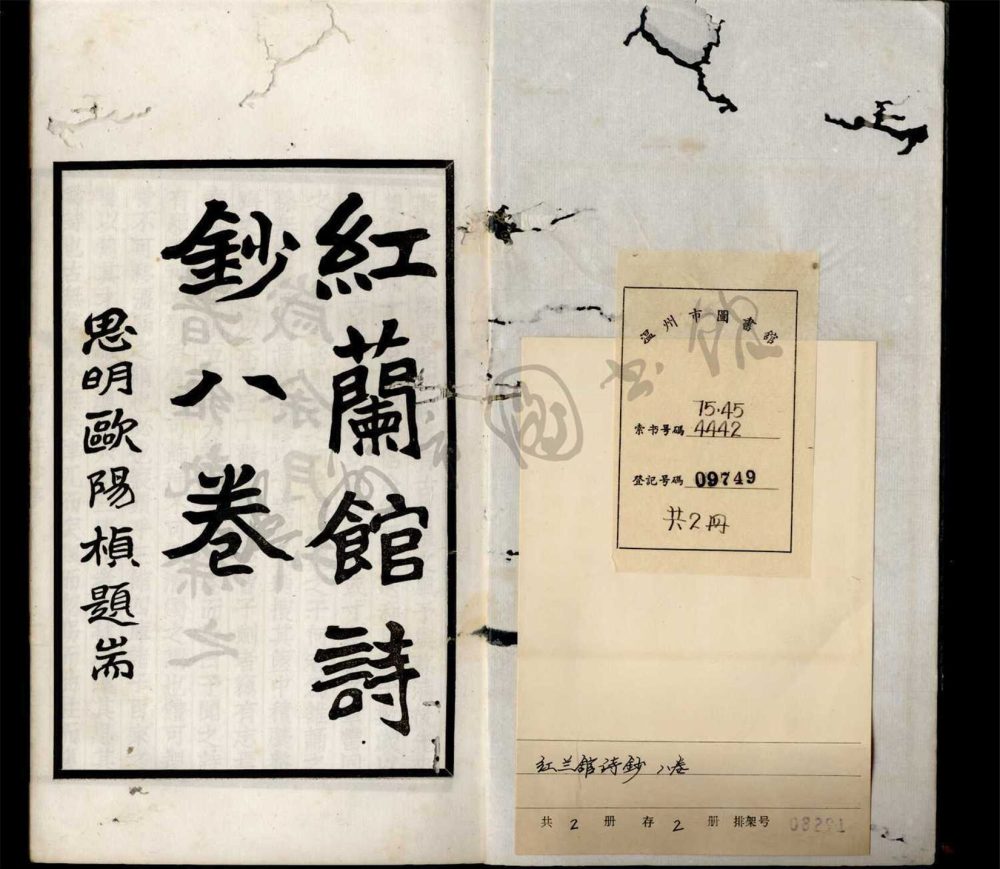 紅蘭館詩
鈔八卷
思明歐陽楨題耑
温州市圖書館
75·45
索书号碼 4442
登記号碼 09749
共2冊
红兰馆诗鈔 八卷
共 2 册 存 2 册 排架号 08291